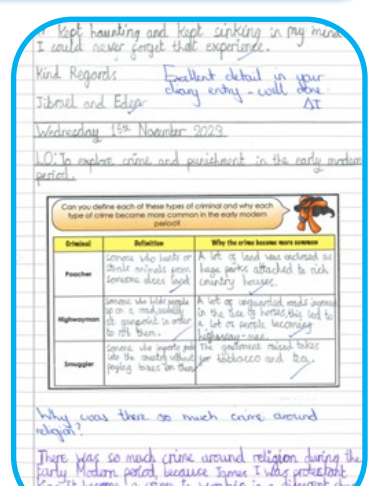 Kept haunting and kept sinking in my mind
I could never forget that experience.
Kind Regards
Excellent detail in your
diary entry - well done.
Jibreel and Edea
Wednesday 15th November 2023
LO: To explore crime and punishment in the early modern
period.
Can you define each of these types of criminal and why each
type of crime became more common in the early modern
period?
Criminal Definition Why the crime became more common
Poacher
Someone who hunts or
animals from
someone elses land
A lot of land was enclosed as
huge parks attached to rich
country houses.
Highwayman
Someone who holds people
up on a road, usually
at gunpoint in order
to rob them.
A lot of unguarded roads increase
in the use of horses, this led to
a lot of people becoming
highway-men.
Smuggler
Someone who imports goods
into the country without
paying taxes on them
The government raised taxes
for tobbacco and tea.
Why was there so much crime around
religion?
There was so much crime around religion during the
Early Modern period, because James I was protestant
a crime to worship in a different